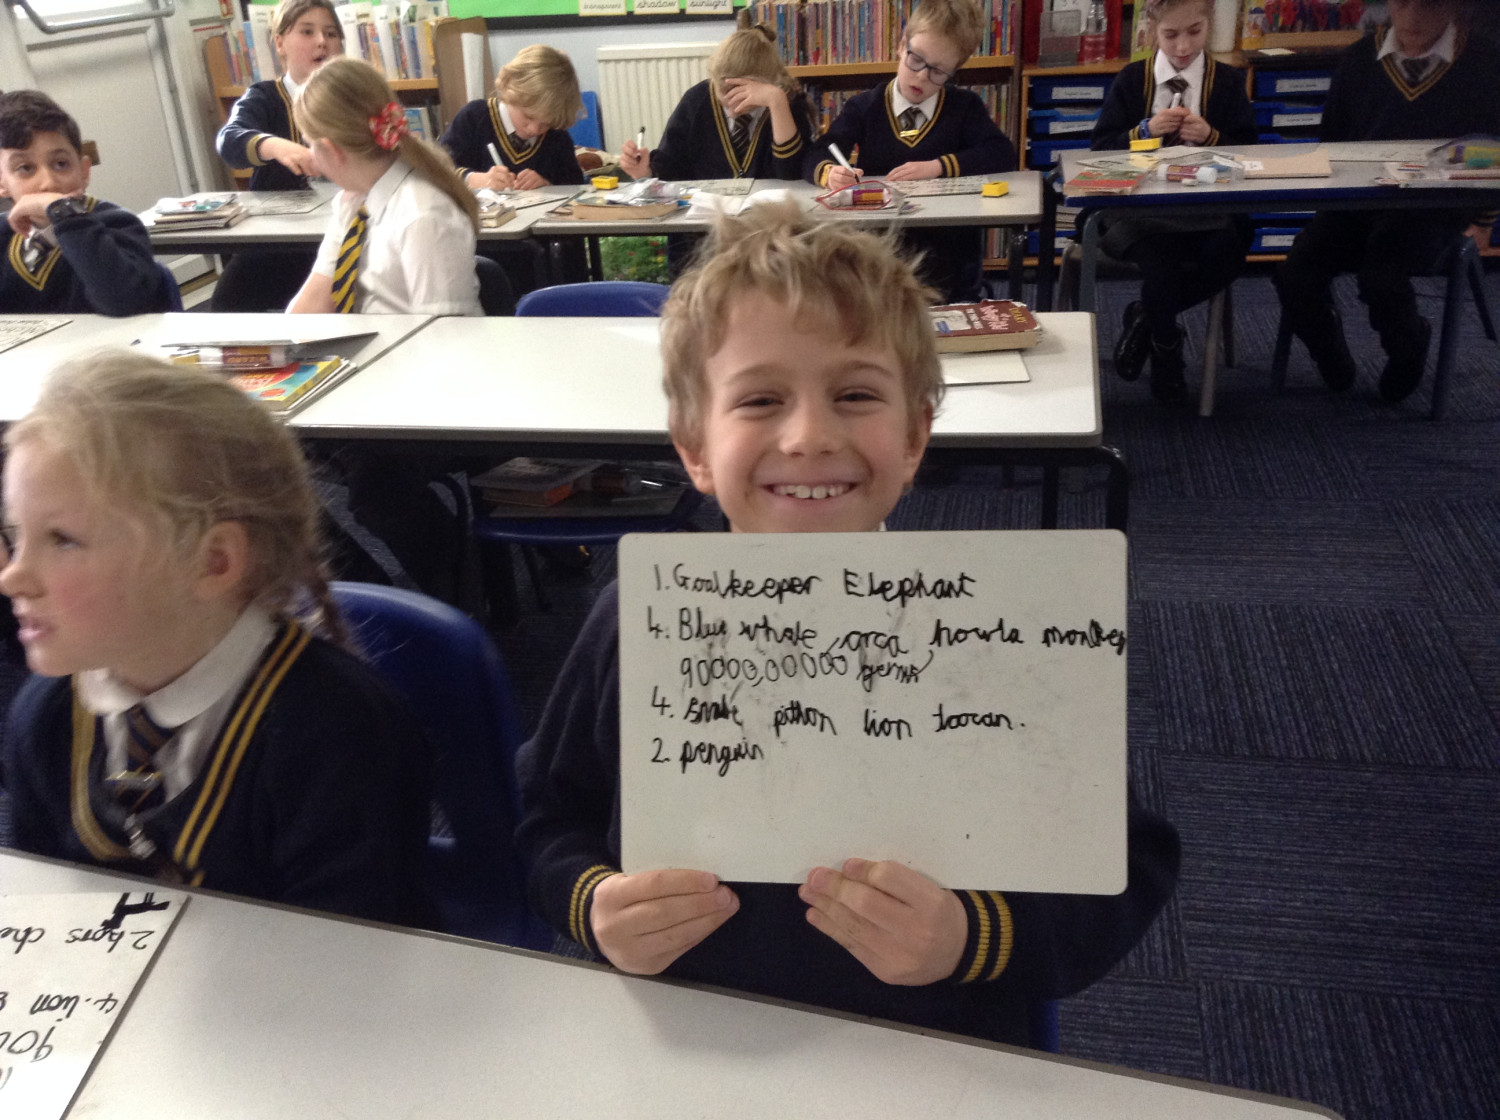 transparent shadow sunlight
1. Goalkeeper Elephant
4. Blue whale, orca howla monkey
90000,00000 germs
4. snake pithon lion toocan.
2. penguin
4. lion